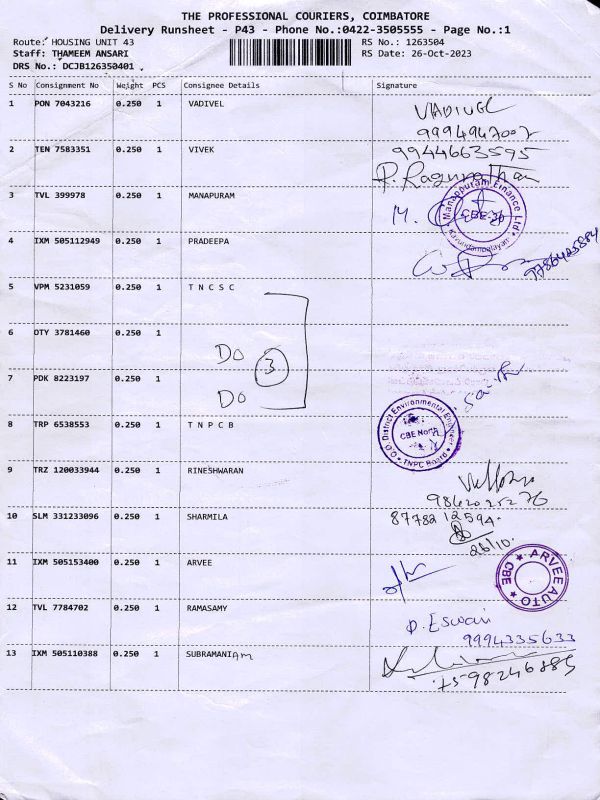 THE PROFESSIONAL COURIERS, COIMBATORE
Delivery Runsheet - P43 - Phone No.:0422-3505555 - Page No.:1
Route: HOUSING UNIT 43
RS No.: 1263504
Staff: THAMEEM ANSARI
RS Date: 26-Oct-2023
DRS No.: DCJB126350401
S No Consignment No Weight PCS Consignee Details Signature
1 PON 7043216 0.250 1 VADIVEL VADIVEL
9994947007
2 TEN 7583351 0.250 1 VIVEK 9944663595
P. Ragunathan
3 TVL 399978 0.250 1 MANAPURAM M.
Manappuram Finance Ltd
CBE
Kavundampalayam
4 IXM 505112949 0.250 1 PRADEEPA
5 VPM 5231059 0.250 1 T N C S C
6 OTY 3781460 0.250 1
DO 3
7 PDK 8223197 0.250 1
DO
8 TRP 6538553 0.250 1 T N P C B
O/O. District Environmental Engineer
CBE North
TNPC Board
9 TRZ 120033944 0.250 1 RINESHWARAN
10 SLM 331233096 0.250 1 SHARMILA 8778212594
26/10
11 IXM 505153400 0.250 1 ARVEE
ARVEE AUTO
CBE
12 TVL 7784702 0.250 1 RAMASAMY P. Eswari
9994335633
13 IXM 505110388 0.250 1 SUBRAMANIAM